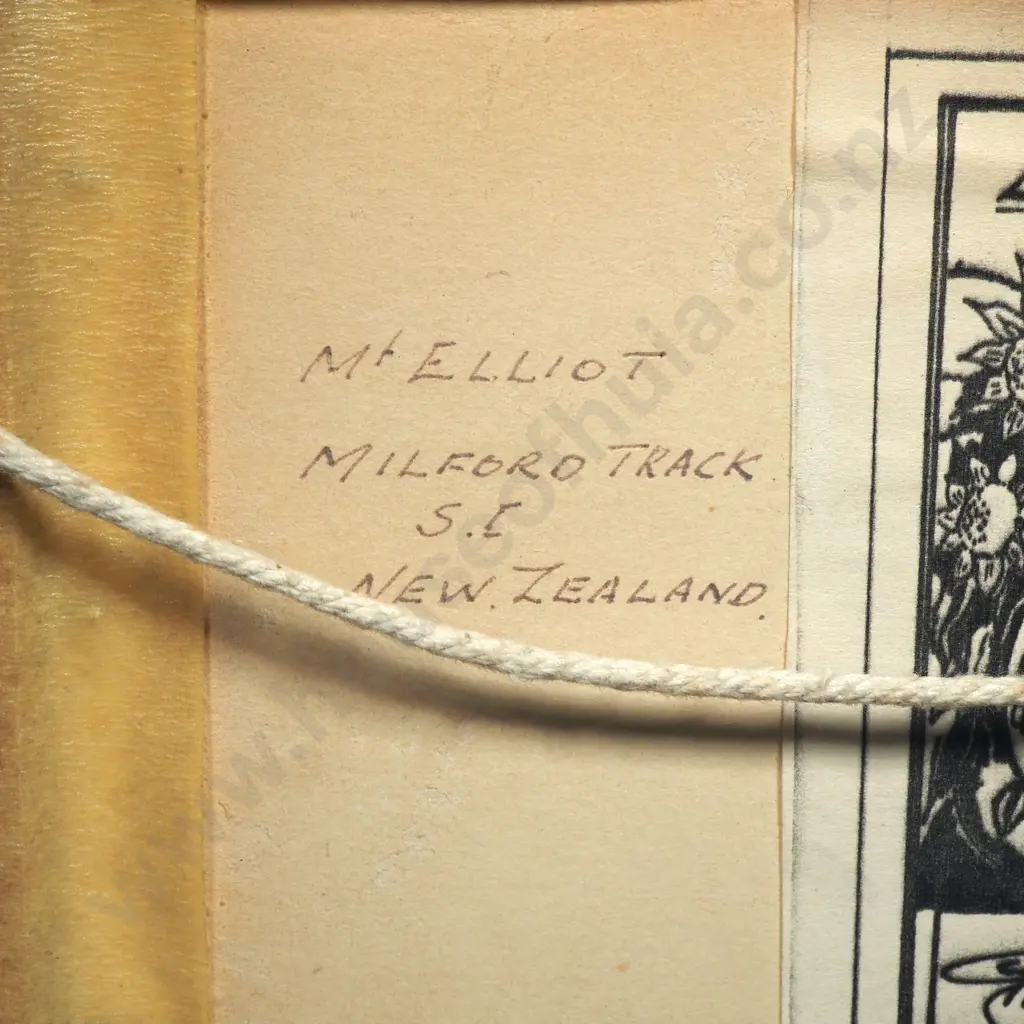 Mt ELLIOT
MILFORD TRACK
S.I
NEW. ZEALAND.
www.houseofhuia.co.nz